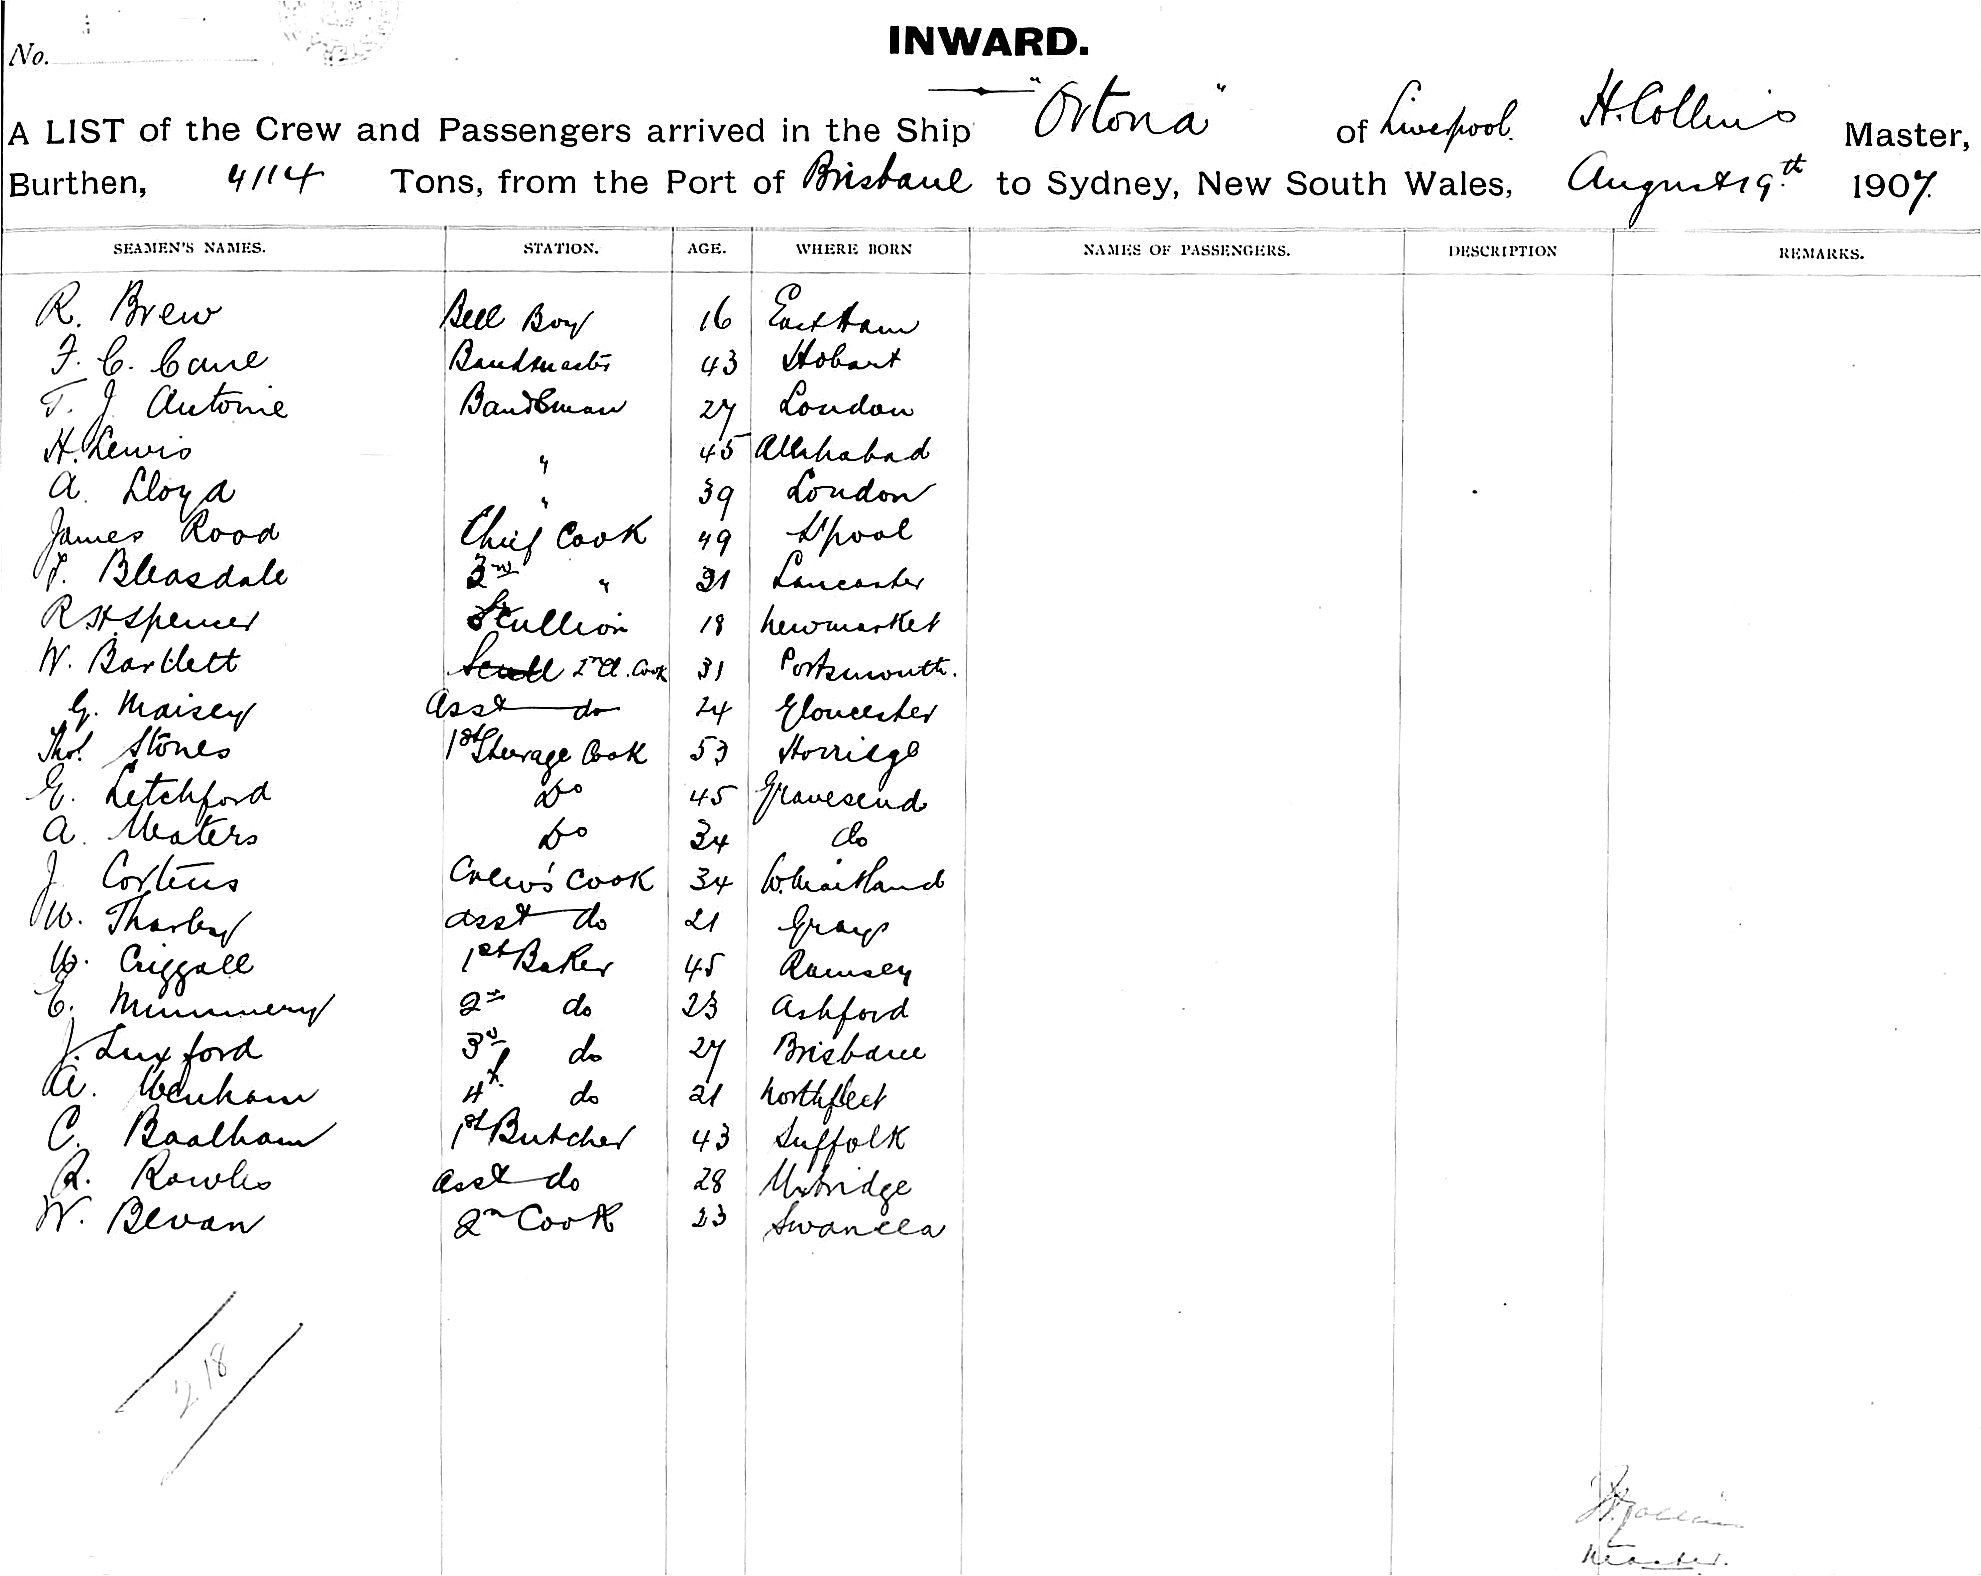 No.
INWARD.
A LIST of the Crew and Passengers arrived in the Ship "Ortona" of Liverpool. H. Collins Master,
Burthen, 4114 Tons, from the Port of Brisbane to Sydney, New South Wales, August 19th 1907.
SEAMEN'S NAMES. STATION. AGE. WHERE BORN NAMES OF PASSENGERS. DESCRIPTION REMARKS.
R. Brew Bell Boy 16 East Ham
F. C. Cane Bandmaster 43 Hobart
T. J. Antoine Bandsman 27 London
H. Lewis " 45 Allahabad
A. Lloyd " 39 London
James Rood Chief Cook 49 L'pool
T. Bleasdale 3rd " 31 Lancaster
R H Spencer Scullion 18 Newmarket
W. Bartlett 2nd Cl. Cook 31 Portsmouth.
G. Maisey Asst do 24 Gloucester
Thos. Stones 1st Steerage Cook 53 Horridge
E. Letchford Do 45 Gravesend
A. Waters Do 34 do
J. Cortens Crew's Cook 34 W. Maitland
W. Tharby Asst do 21 Grays
W. Criggall 1st Baker 45 Ramsey
E. Mummery 2nd do 23 Ashford
J. Luxford 3rd do 27 Brisbane
A. Wenham 4th do 21 Northfleet
C. Baalham 1st Butcher 43 Suffolk
R. Rowles Asst do 28 Uxbridge
W. Bevan 2nd Cook 23 Swansea
218
H. Collins
Master.